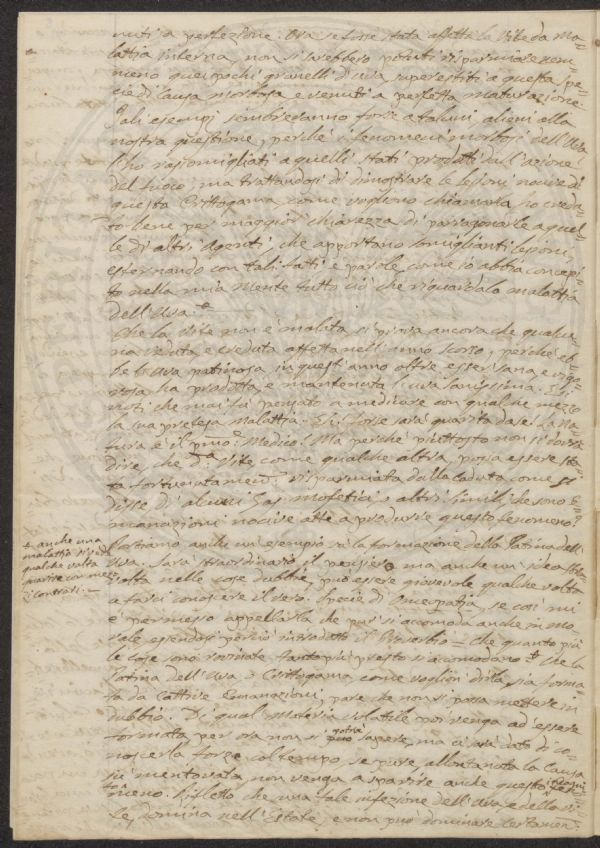 nuti a perfezione. Ora se fosse stata affetta la Vite da ma=
lattia interna, non si sarebbero potuti risparmiare nem=
meno quei pochi granelli di uva superestiti a questa spe=
cie di causa morbosa, e venuti a perfetta maturazione.
Tali esempi sembreranno forse a taluni alieni alla
nostra questione, perchè i fenomeni morbosi dell'Uva
l'ho rassomigliati a quelli stati prodotti dall'azione
del fuoco; ma trattandosi di dimostrare le lesioni nocive di
questa Crittogama, come vogliono chiamarla, io creda=
to bene per maggior chiarezza di parragonarle a quel=
le di altri Agenti, che apportano somiglianti lesioni,
esternando con tali fatti e parole, come io abbia concepi=
to nella mia mente tutto ciò che riguarda la malattia
dell'Uva.
Che la Vite non è malata si prova ancora che qualcu=
na veduta, e creduta affetta nell'anno scorso, perchè eb=
be l'Uva patinosa, in quest'anno oltre esser sana e vigo=
rosa, ha prodotta, e mantenuta l'uva sanissima. Si
noti che mai fù pensato a medicare con qualche mezzo
la sua pretesa malattia. Forse sarà guarita da se: La Na=
tura è il primo Medico! Ma perchè piuttosto non si potrà
dire, che d.a Vite come qualche altra, possa essere sta=
ta fortunatamen: risparmiata dalla caduta come si
disse di alcuni Gas mofetici o altri simili che sono E=
manazioni nocive atte a produrre questo fenomeno?
Portiamo anche un esempio su la formazione della Patina dell'
Uva. Sarà straordinario il pensiero, ma anche un'idea
volta nelle cose dubbie, può essere giovevole qualche volta
a farci conoscere il vero. Specie di Omeopatia, se così mi
è permesso appellarla che pur si accomoda anche in mo=
rale, essendosi perciò introdotto il Proverbio = Che quanto più
le cose sono rovinate, tanto più presto si accomodano. Che la
Patina dell'Uva o Crittogama come voglion dirla sia forma=
ta da cattive Emanazioni, pare che non si possa mettere in
dubbio. Di qual Materia volatile poi venga ad essere
formata, per ora non si potrà sapere, ma ci sarà dato di co=
noscerla forse col tempo, se pure allontanata la Causa
su mentovata, non venga a sparire anche questo
meno. Rifletto che una tale infezione dell'Uva e della Vi=
te, domina nell'Estate, e non può dominare certamen:
+ anche una
malattia si può
qualche volta
guarire con mez=
zi contrari. =